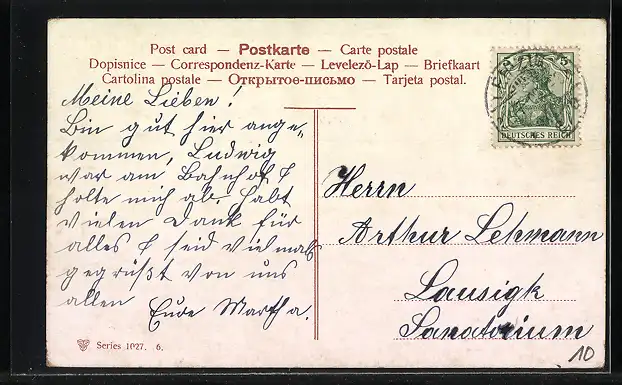 Post card — Postkarte — Carte postale
Dopisnice — Correspondenz-Karte — Levelező-Lap — Briefkaart
Cartolina postale — Открытое-письмо — Tarjeta postal.
Meine Lieben!
Bin gut hier ange-
kommen, Ludwig
war am Bahnhof &
holte mich ab. Habt
vielen Dank für
alles & seid vielmals
gegrüßt von uns
allen Eure Martha.
5 5
DEUTSCHES REICH
Herrn
Arthur Lehmann
Lausigk
Sanatorium
Series 1027. 6.
10